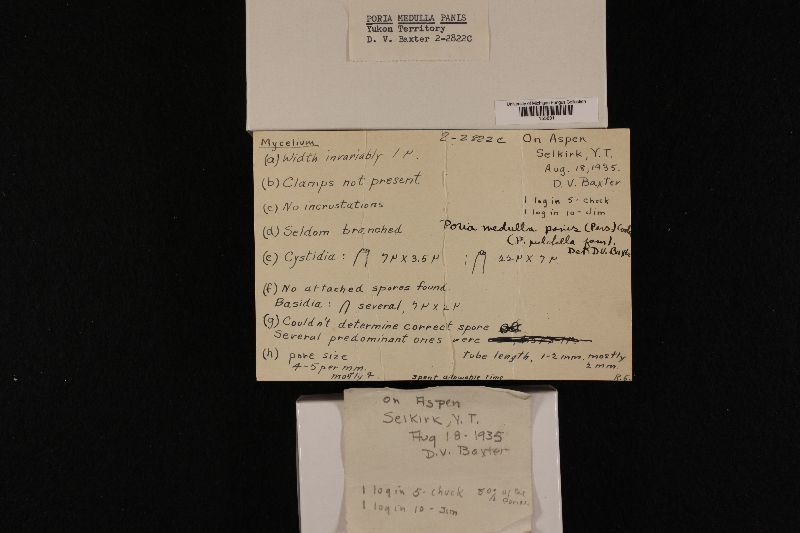 PORIA MEDULLA PANIS
Yukon Territory
D. V. Baxter 2-2822C
University of Michigan Fungus Collection
Mycelium
2-2822c
On Aspen
Selkirk, Y.T.
Aug. 18, 1935.
D.V. Baxter
1 log in 5-chuck
1 log in 10-Jim
(a) Width invariably 1 µ.
(b) Clamps not present
(c) No incrustations
(d) Seldom branched
Poria medulla panis (Pers)
Det D.V. Baxter
(e) Cystidia: 7µ X 3.5 µ ; 22µ X 7µ
(f) No attached spores found.
Basidia: several, 7µ X 2µ
(g) Couldn't determine correct spore
Several predominant ones were
(h) pore size
4-5 per mm.
mostly 4.
Tube length, 1-2 mm. mostly
2 mm.
Spent allowable time
R.S.
on Aspen
Selkirk, Y.T.
Aug 18-1935
D.V. Baxter
1 log in 5-chuck
1 log in 10-Jim